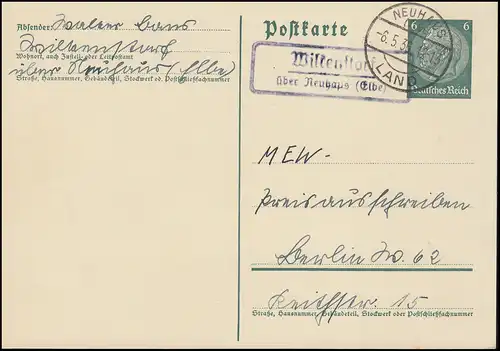 Absender: Walter Cans
Wilkenstorf
Wohnort, auch Zustell- oder Leitpostamt
über Neuhaus (Elbe)
Straße, Hausnummer, Gebäudeteil, Stockwerk od. Postschließfachnummer
Postkarte
NEUHAUS
-6.5.3
LAND
6 6
Deutsches Reich
Wilkenstorf
über Neuhaus (Elbe)
MEW-
Preisausschreiben
Berlin W. 62
Keithstr. 15
Straße, Hausnummer, Gebäudeteil, Stockwerk oder Postschließfachnummer